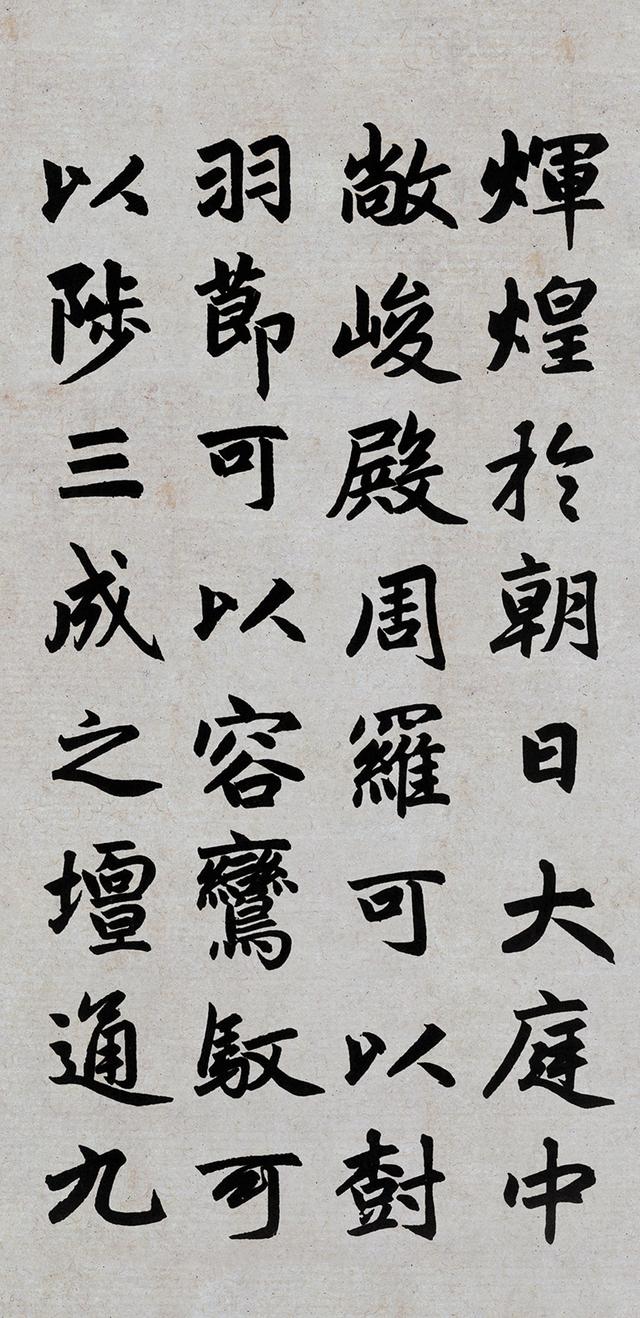 輝煌於朝日大庭中
敞峻殿周羅可以樹
羽節可以容鸞馭可
以陟三成之壇通九